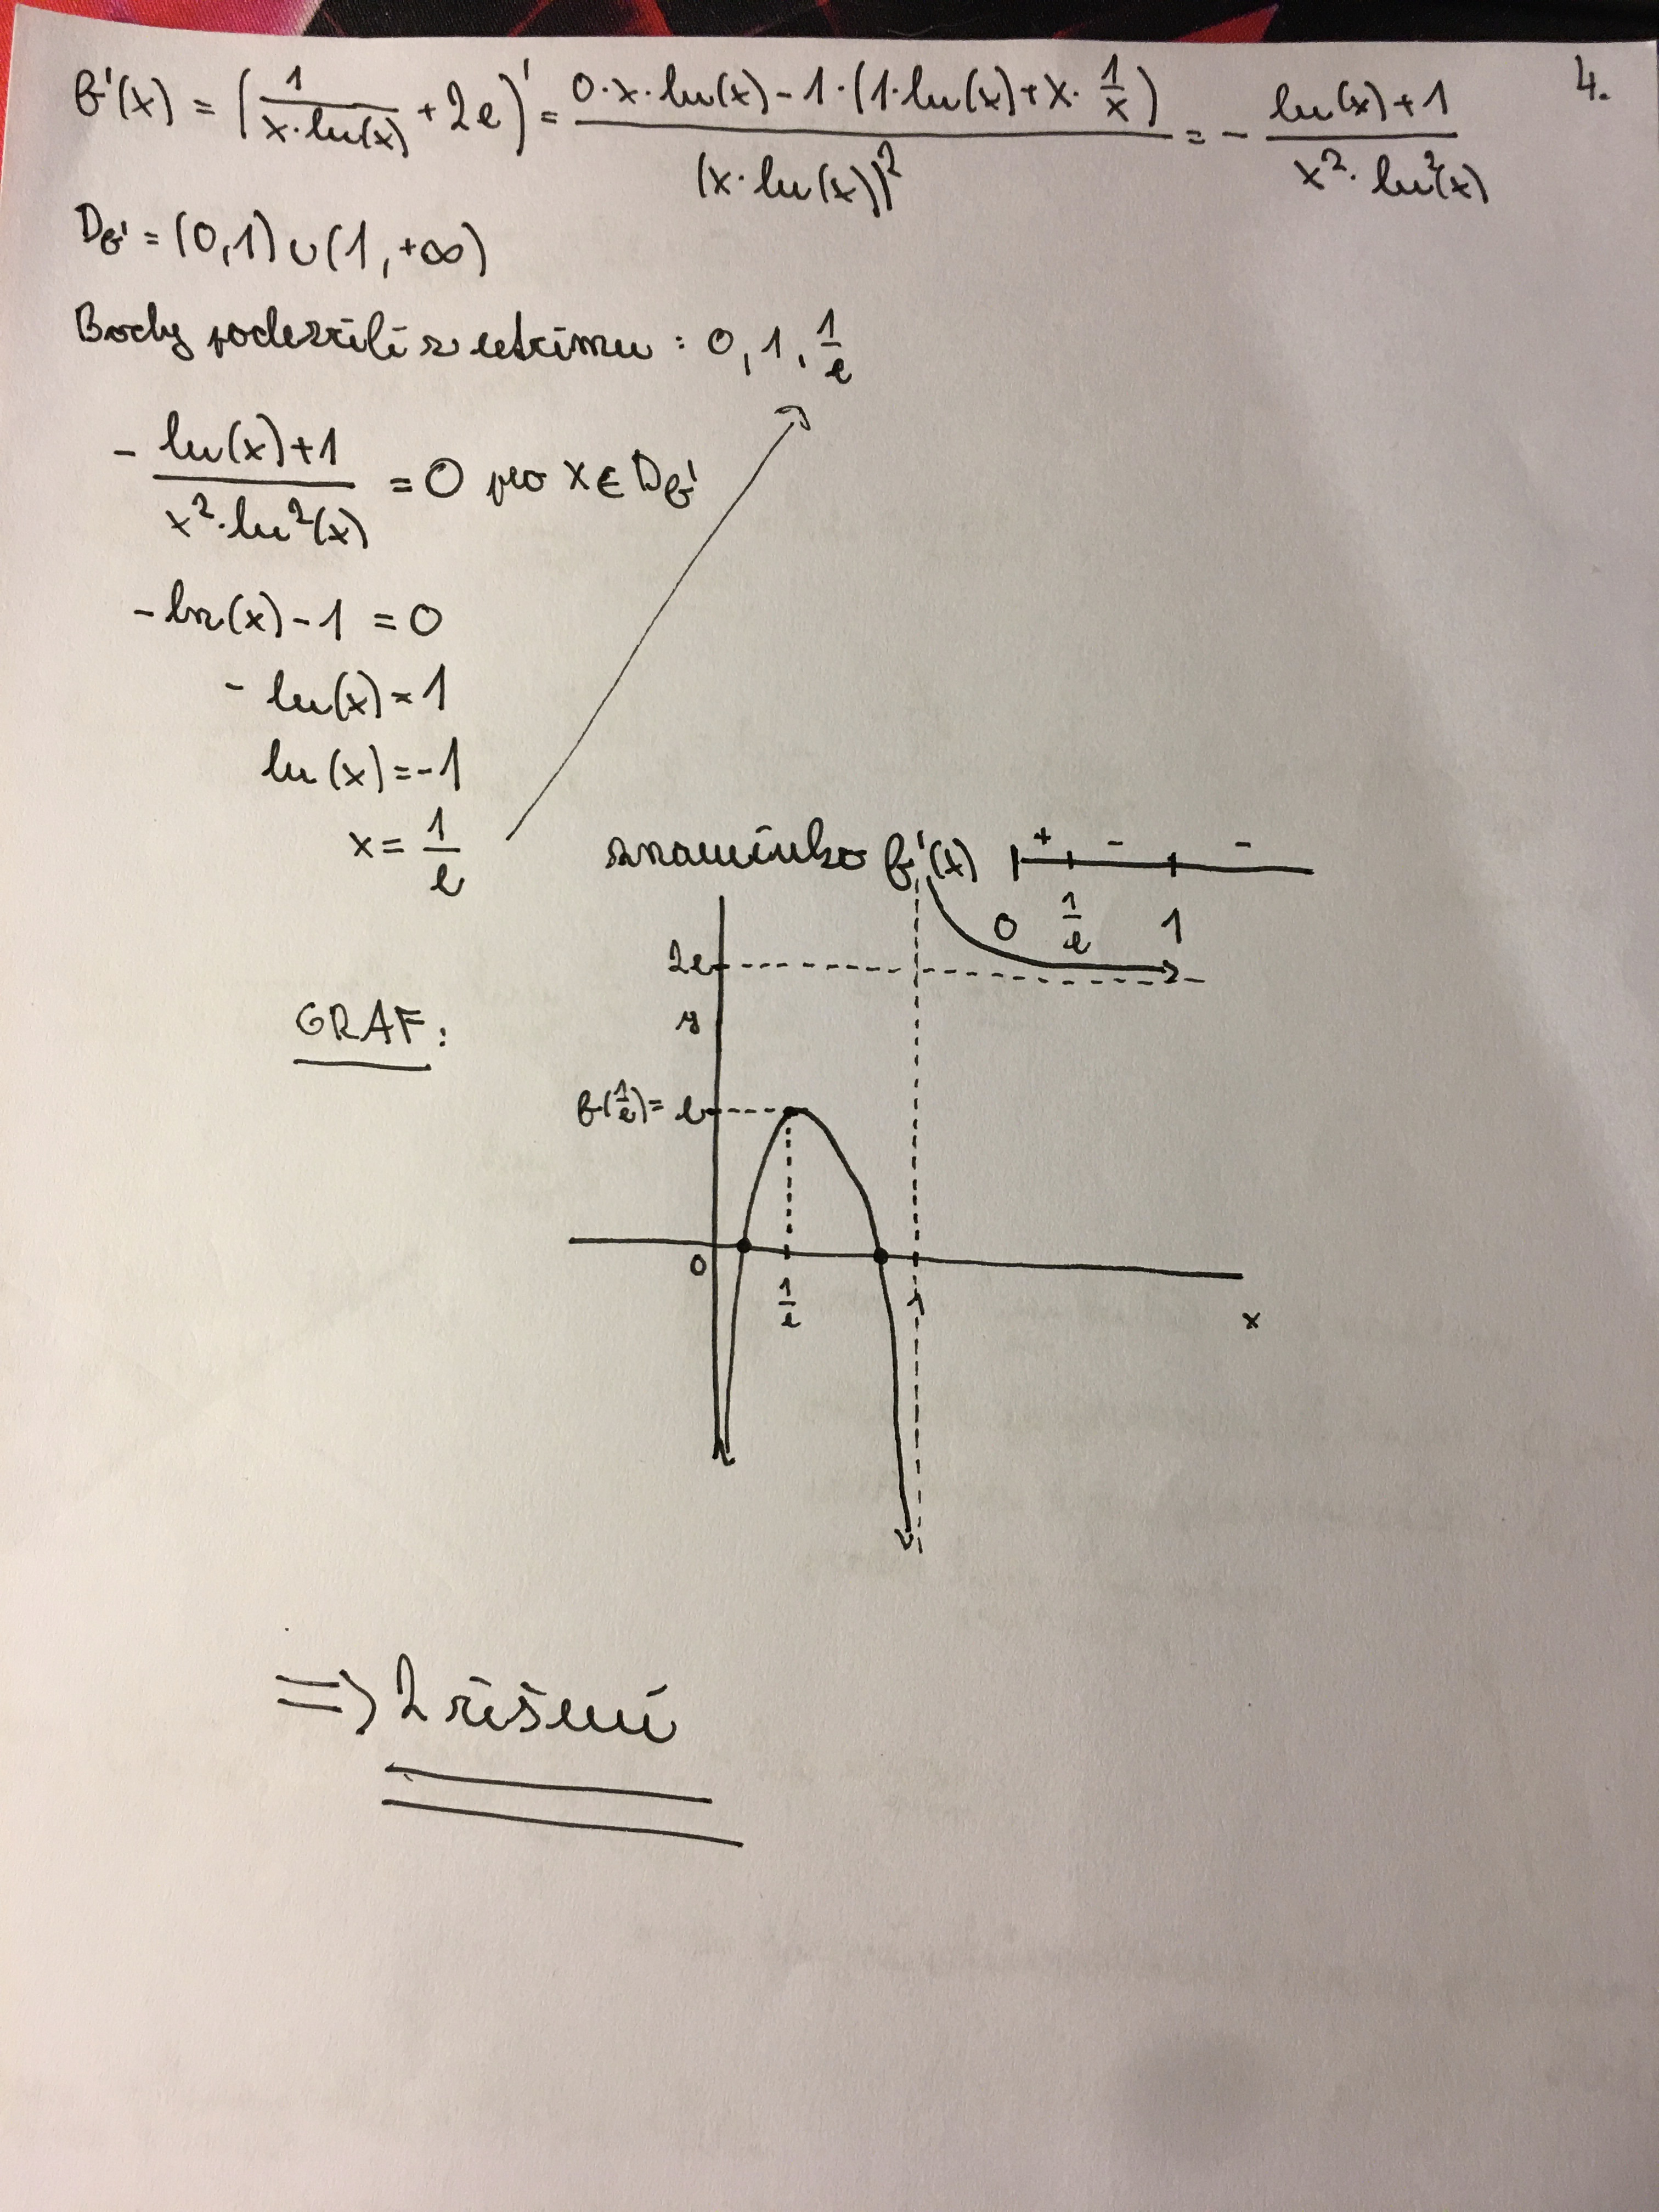 f'(x) = (1/(x·ln(x)) + 2e)' = (0·x·ln(x) - 1·(1·ln(x) + x·1/x))/(x·ln(x))² = - (ln(x)+1)/(x²·ln²(x))
4.
Df' = (0,1) ∪ (1,+∞)
Body podezřelé z extrému : 0, 1, 1/e
- (ln(x)+1)/(x²·ln²(x)) = 0 pro x ∈ Df'
-ln(x) - 1 = 0
- ln(x) = 1
ln(x) = -1
x = 1/e
znaménko f'(x) + - -
0 1/e 1
2e
GRAF:
y
f(1/e) = e
0 1/e 1 x
=> 2 řešení